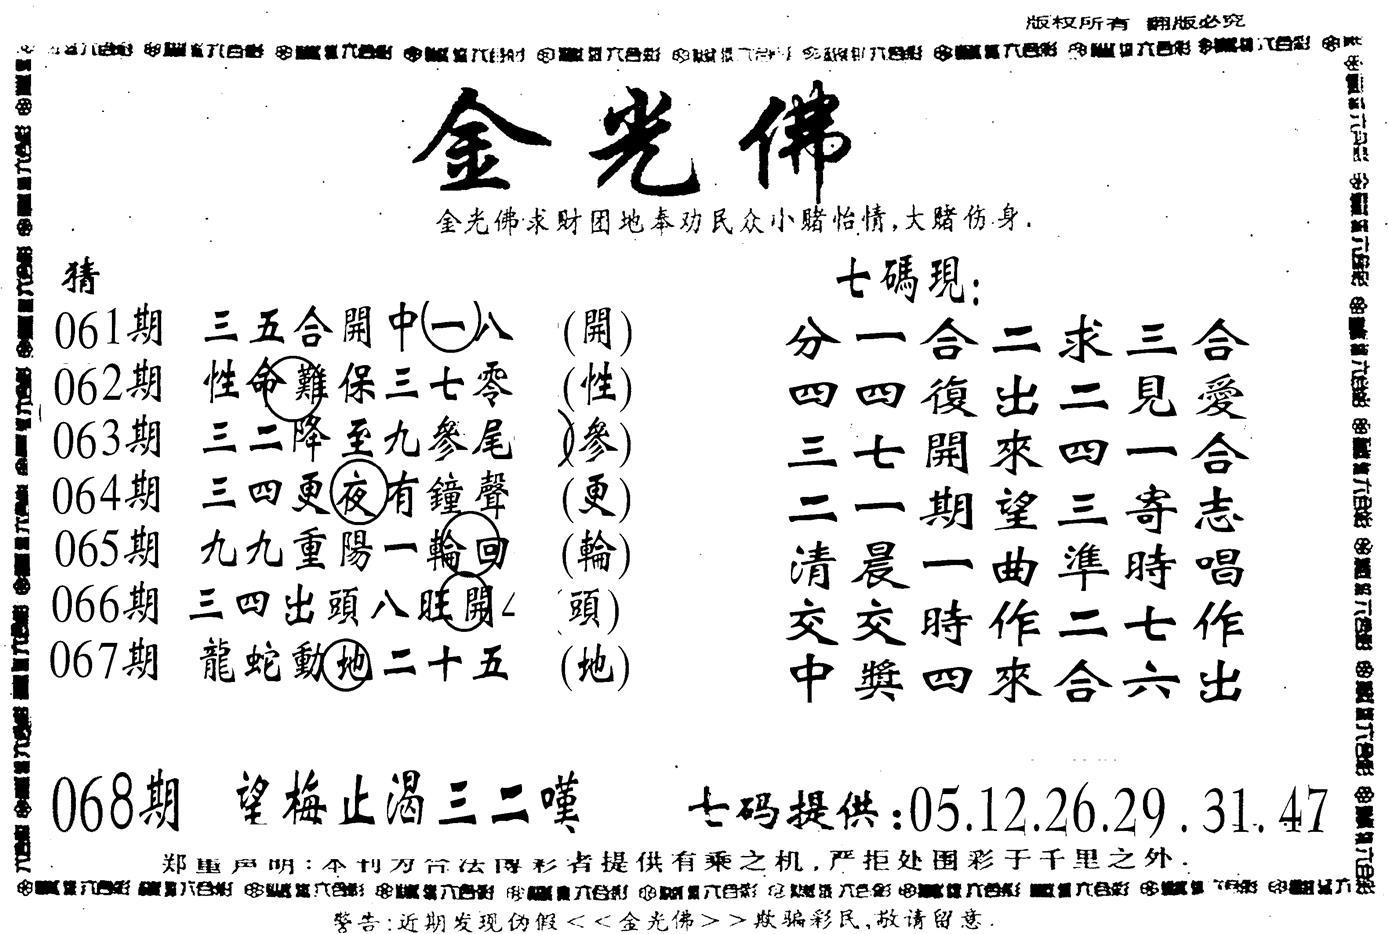 版权所有 翻版必究
金光佛
金光佛求财团地奉劝民众小赌怡情,大赌伤身.
猜
061期 三五合開中一八 (開)
062期 性命難保三七零 (性)
063期 三二降至九參尾 (參)
064期 三四更夜有鐘聲 (更)
065期 九九重陽一輪回 (輪)
066期 三四出頭八旺開 頭)
067期 龍蛇動地二十五 (地)
七碼現:
分一合二求三合
四四復出二見愛
三七開來四一合
二一期望三寄志
清晨一曲準時唱
交交時作二七作
中獎四來合六出
068期 望梅止渴三二嘆 七码提供:05.12.26.29.31.47
郑重声明:本刊为合法博彩者提供有乘之机,严拒处围彩于千里之外.
警告:近期发现伪假<<金光佛>>欺骗彩民,敬请留意.